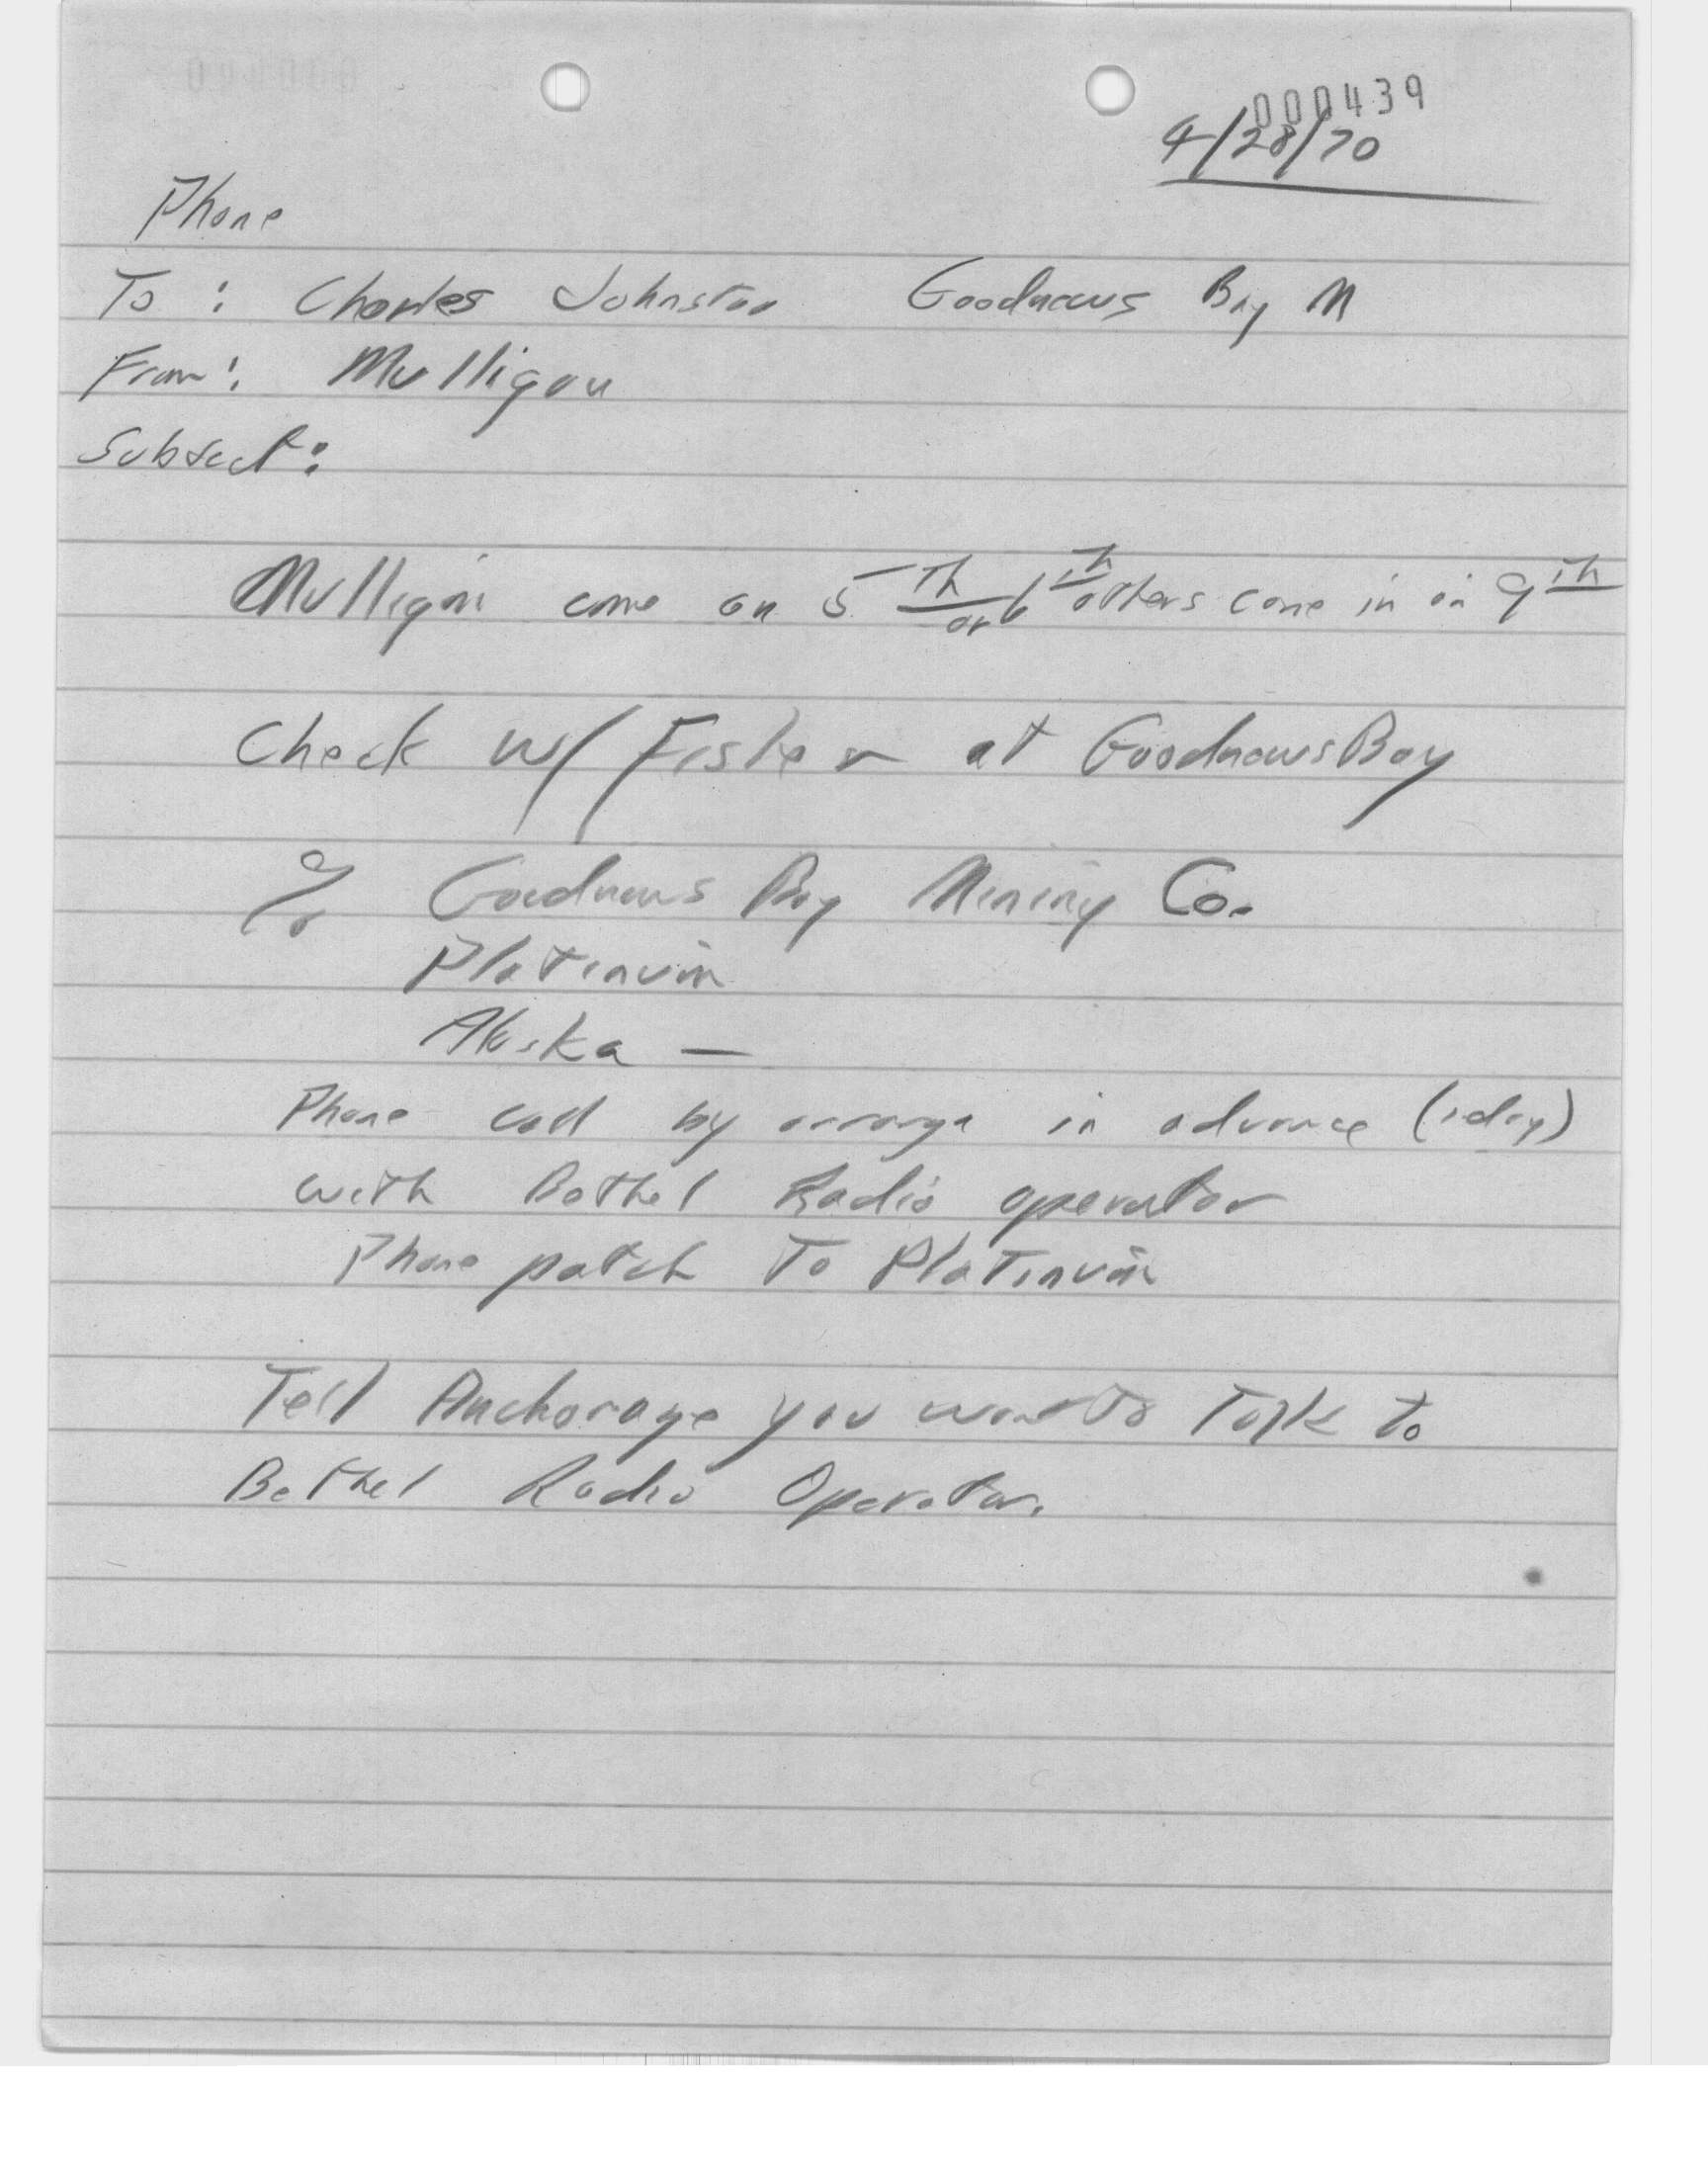 000439
4/28/70
Phone
To : Charles Johnston Goodnews Bay M
From: Mulligan
Subject:
Mulligan come on 5th or 6th others come in on 9th
Check w/ Fisher at Goodnews Bay
c/o Goodnews Bay Mining Co.
Platinum
Alaska —
Phone call by arrange in advance (1 day)
with Bethel Radio operator
Phone patch To Platinum
Tell Anchorage you want to Talk to
Bethel Radio Operator.